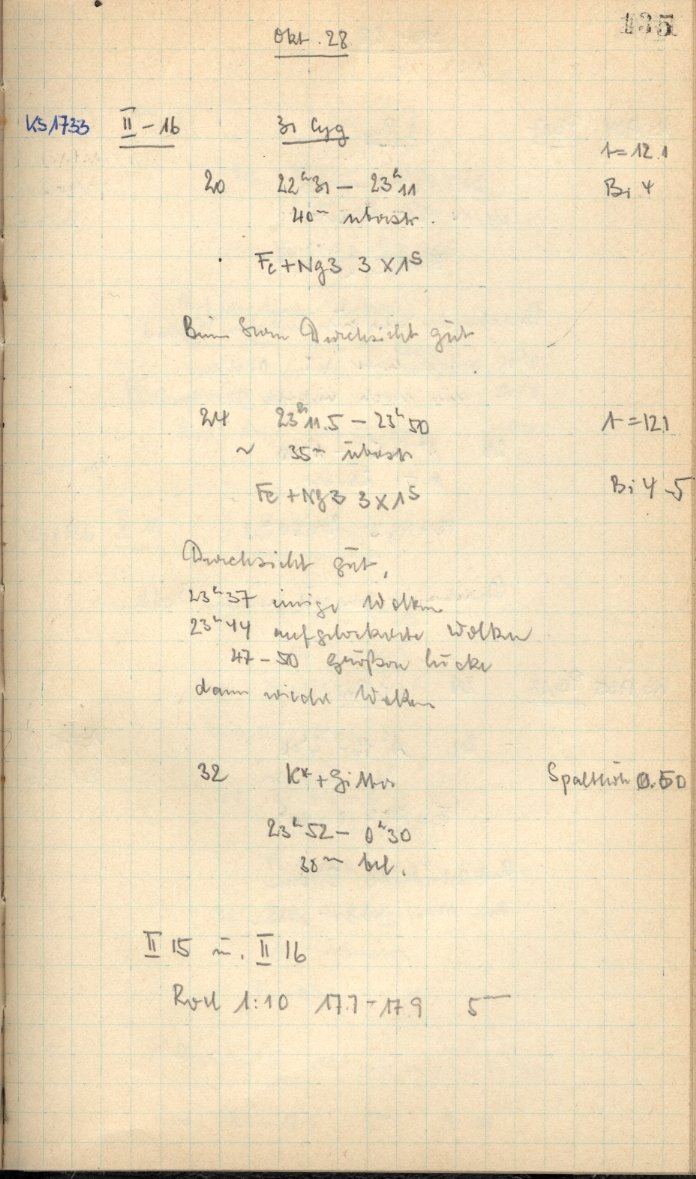 135
Okt. 28
KS1733 II-16 31 Cyg
t=12.1
20 22ʰ31 – 23ʰ11 Bi 4
40ᵐ überstr.
Fe+Ng3 3x1ˢ
Beim Stern Durchsicht gut
24 23ʰ11.5 – 23ʰ50 t=121
~ 35ᵐ überstr
Fe+Ng3 3x1ˢ Bi 4-5
Durchsicht gut,
23ʰ37 einige Wolken
23ʰ44 aufgelockerte Wolken
47-50 größere Lücke
dann wieder Wolken
32 K*+Gitter 0.50
23ʰ52 – 0ʰ30
38ᵐ bel.
II 15 u. II 16
Rod 1:10 17.7-17.9 5ᵐ